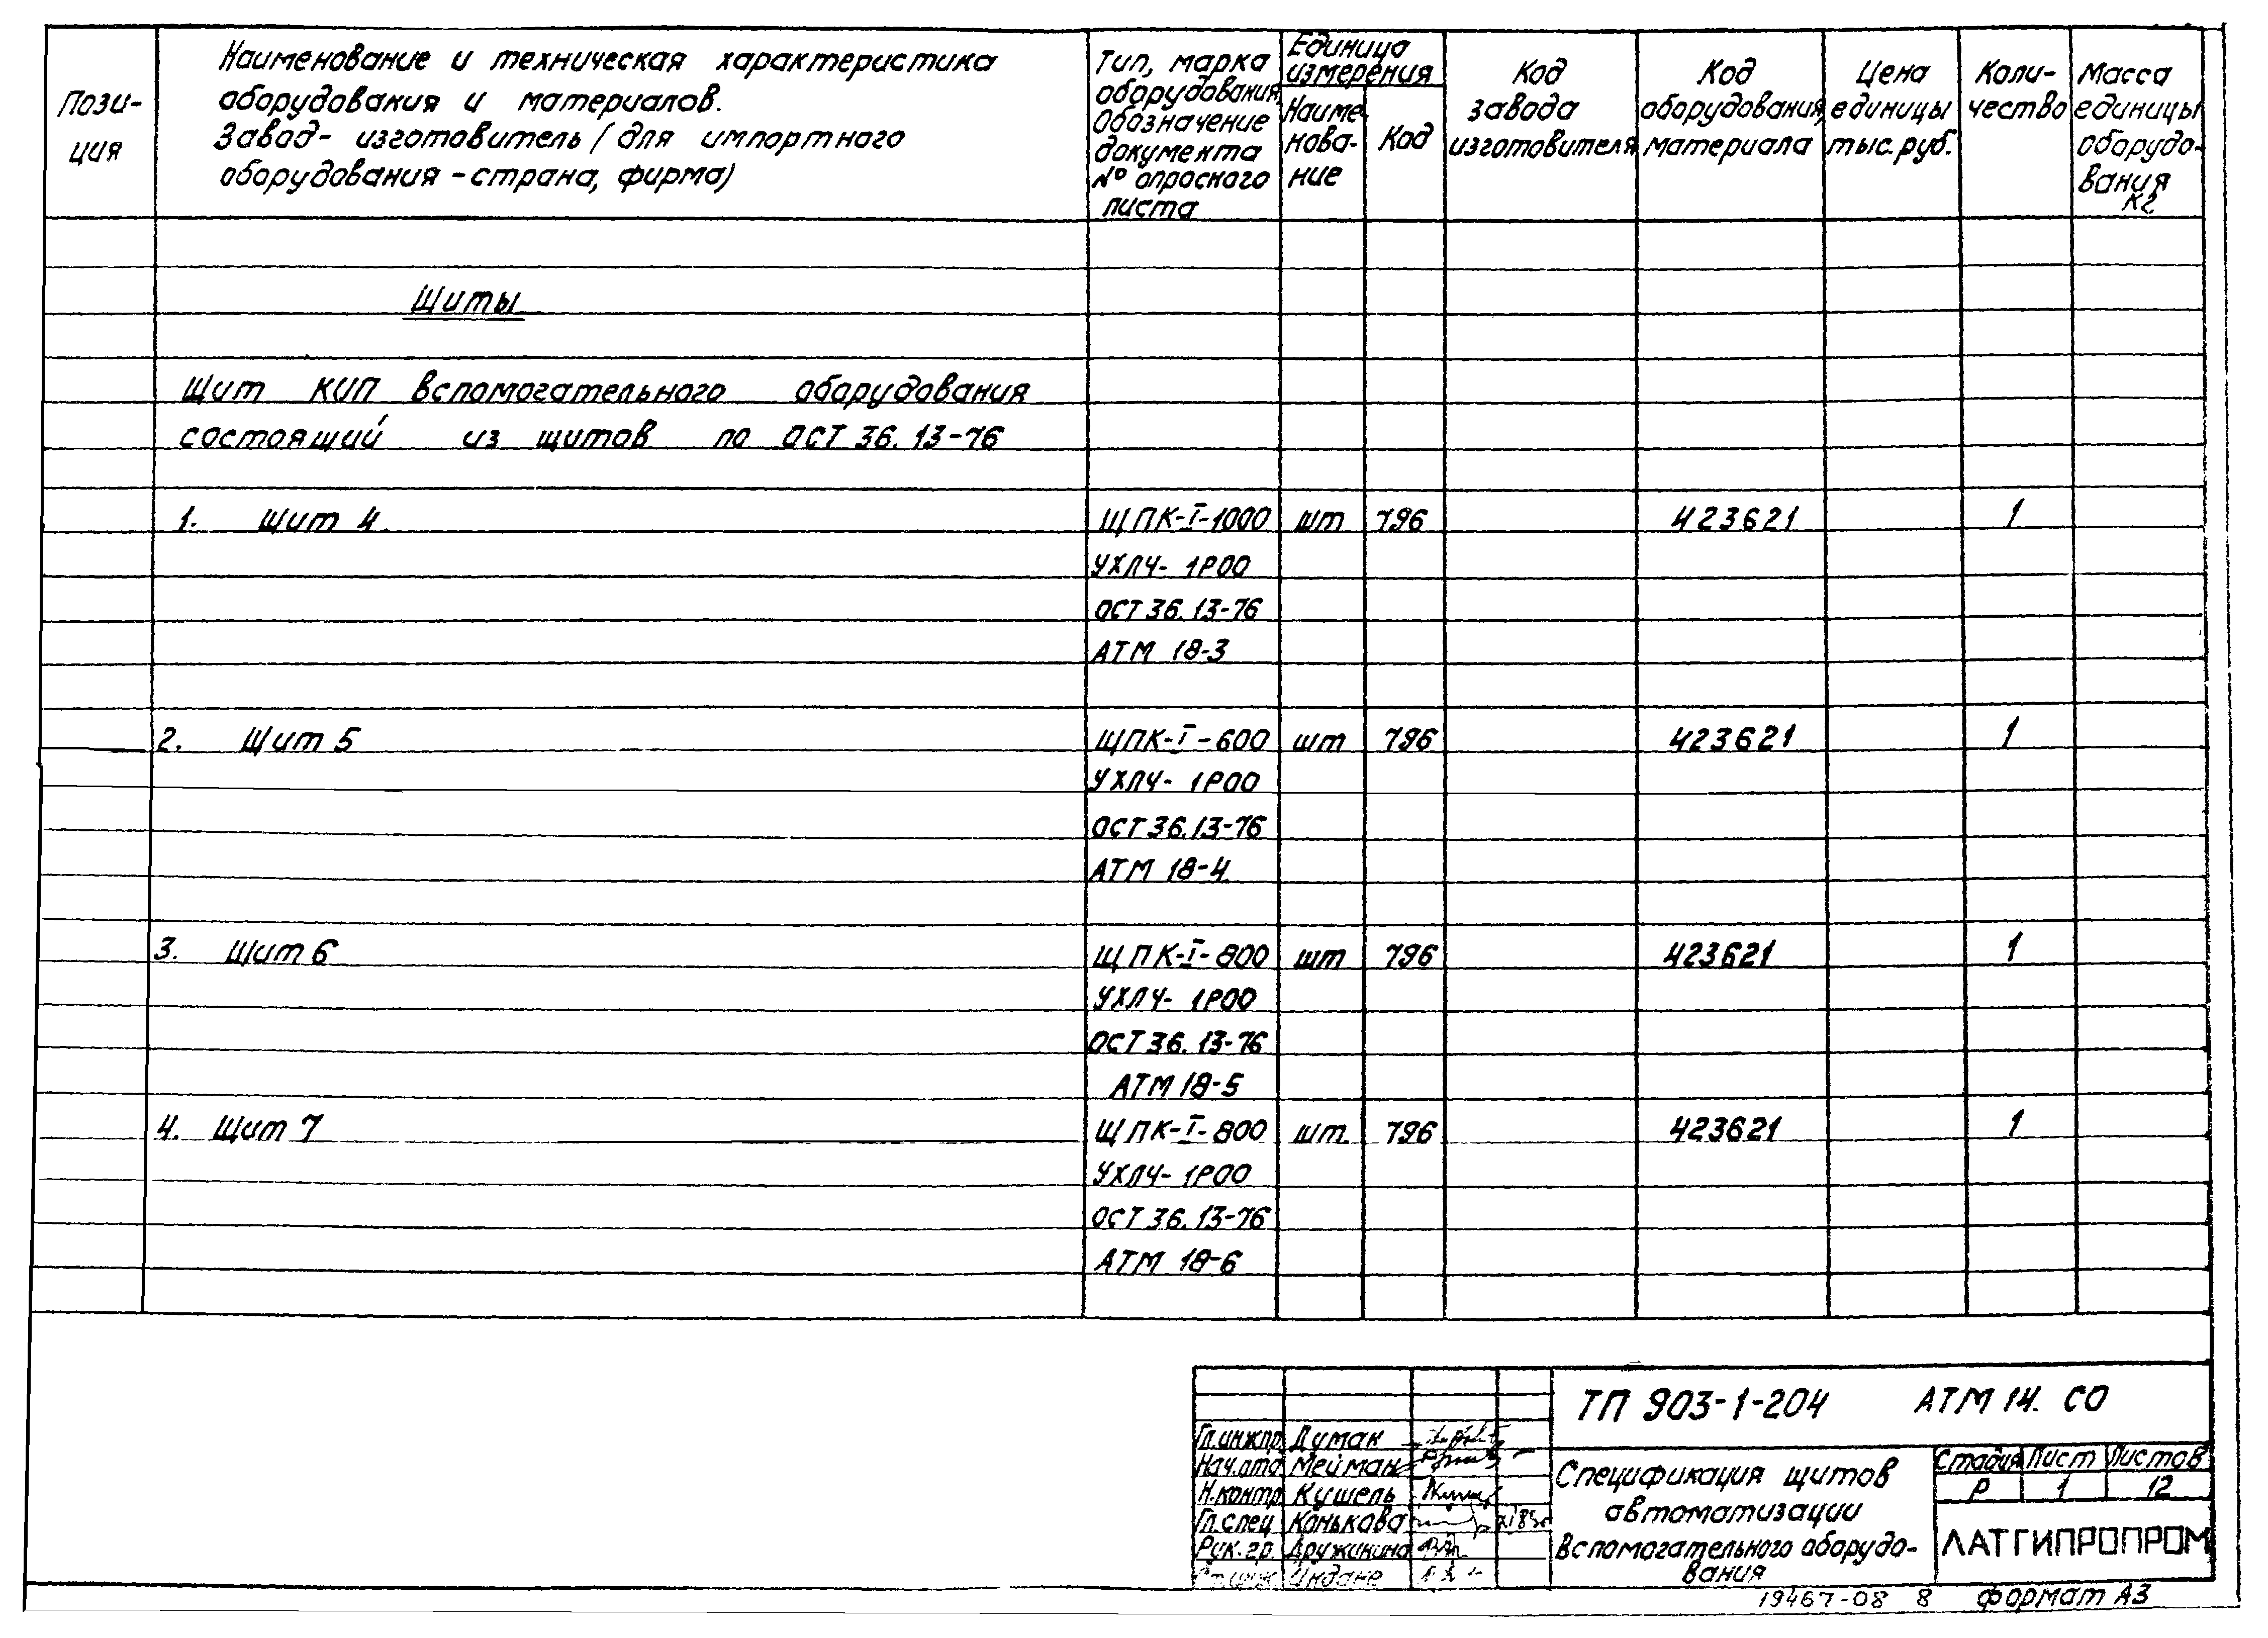 Пози-
ция
Наименование и техническая характеристика
оборудования и материалов.
Завод- изготовитель (для импортного
оборудования - страна, фирма)
Тип, марка
оборудования,
Обозначение
документа
№ опросного
листа
Единица
измерения
Наиме-
нова-
ние
Код
Код
завода
изготовителя
Код
оборудования,
материала
Цена
единицы
тыс. руб.
Коли-
чество
Масса
единицы
оборудо-
вания
кг
Щиты
Щит КИП вспомогательного оборудования
состоящий из щитов по ОСТ 36.13-76
1. Щит 4 ЩПК-I-1000 шт 796 423621 1
УХЛ4- 1Р00
ОСТ 36.13-76
АТМ 18-3
2. Щит 5 ЩПК-I-600 шт 796 423621 1
УХЛ4- 1Р00
ОСТ 36.13-76
АТМ 18-4
3. Щит 6 ЩПК-I-800 шт 796 423621 1
УХЛ4- 1Р00
ОСТ 36.13-76
АТМ 18-5
4. Щит 7 ЩПК-I-800 шт. 796 423621 1
УХЛ4- 1Р00
ОСТ 36.13-76
АТМ 18-6
ТП 903-1-204 АТМ 14. СО
Гл.инж.пр. Думак
Нач.отд Мейман
Н.контр Кушель
Гл.спец Конькова
Рук.гр. Дружинина
Ст.инж. Индане
Спецификация щитов
автоматизации
вспомогательного оборудо-
вания
Стадия Лист Листов
Р 1 12
ЛАТГИПРОПРОМ
19467-08 8 Формат А3